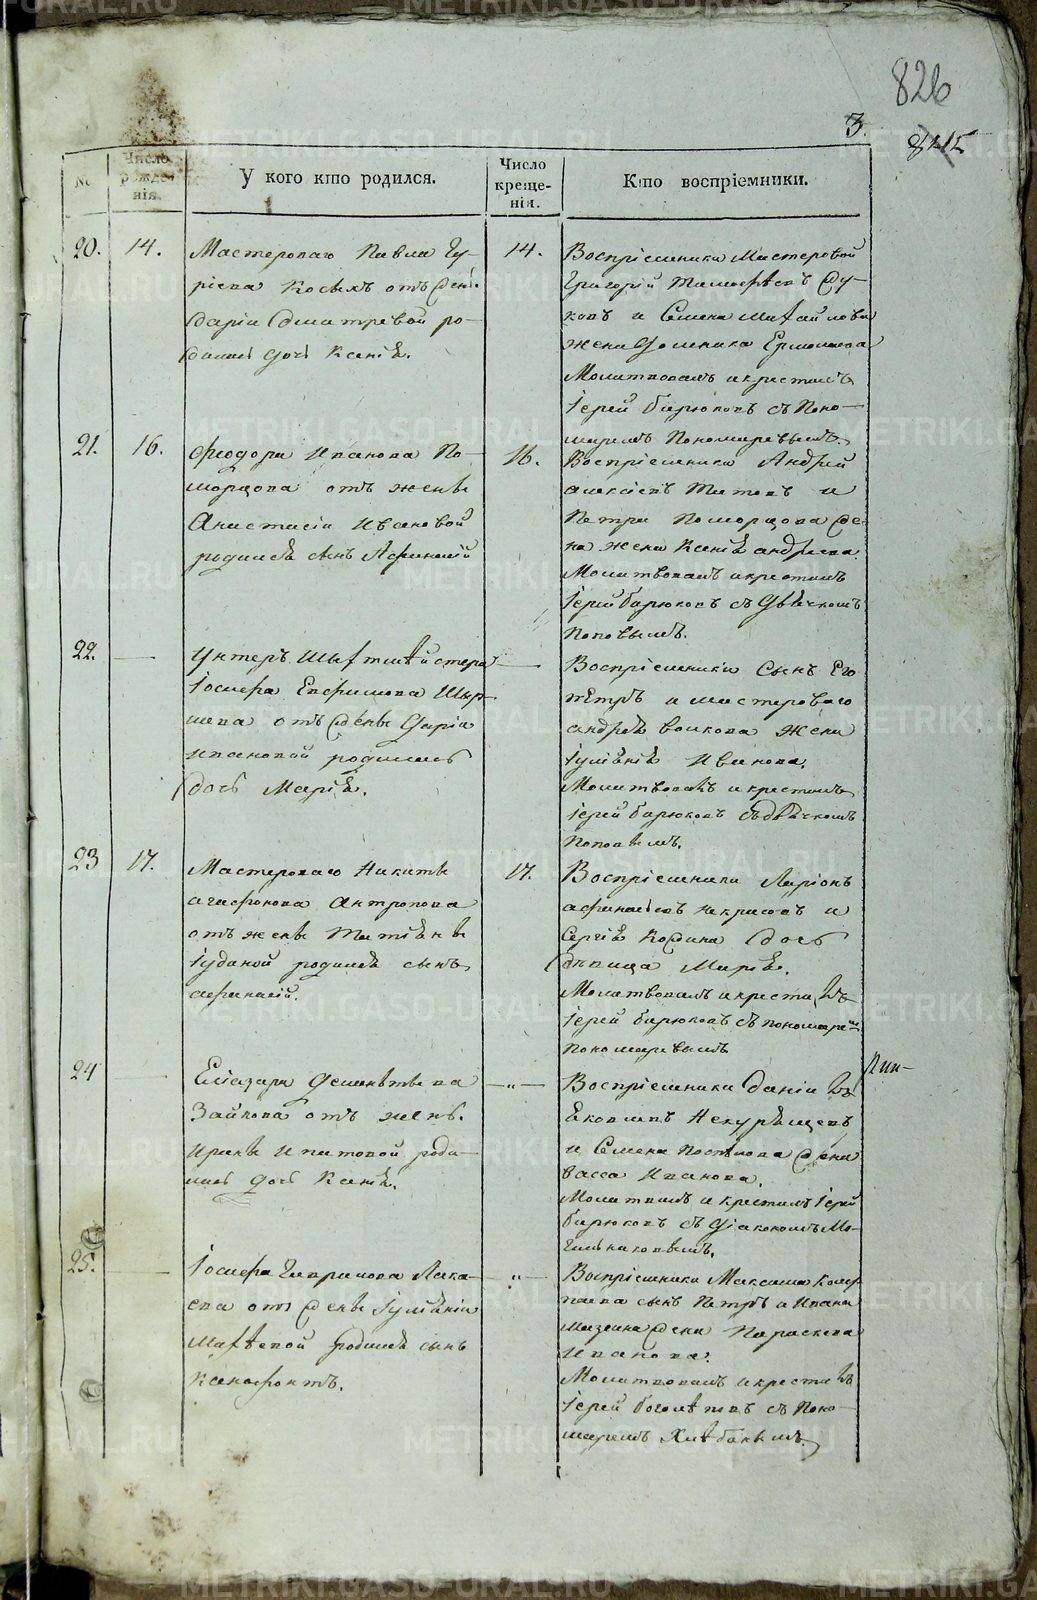 826
3.
№
Число рожде-нія.
У кого кто родился.
Число креще-нія.
Кто воспріемники.
20.
14.
Мастероваго Павла Гу-
ріева Косыхъ отъ жены
Даріи Дмитревой ро-
дилась дочь Ксенія.
14.
Воспріемники Мастеровой
Григорій Тимофѣевъ
и Семена Михайлова
жена Домника Ермолаева
Молитвовалъ и крестилъ
Іерей Бирюковъ съ Поно-
маремъ Пономаревымъ.
21.
16.
Феодора Иванова По-
морцова отъ жены
Анастасіи Ивановой
родился сынъ Афанасій
16.
Воспріемники Андрей
Алексіевъ Титовъ и
Петра Поморцова
жена Ксенія Андреева.
Молитвовалъ и крестилъ
Іерей Бирюковъ съ Дьячкомъ
Поповымъ.
22.
Унтеръ Шихтмейстера
Іосифа Евфимова
отъ жены Даріи
Ивановой родилась
дочь Марія.
Воспріемники Сынъ Его
Петръ и мастероваго
Андрея Волкова жена
Іуліанія Иванова.
Молитвовалъ и крестилъ
Іерей Бирюковъ съ дьячкомъ
Поповымъ.
23
17.
Мастероваго Никиты
Агафонова Антропова
отъ жены Татіаны
родился сынъ
Афанасій.
17.
Воспріемники Ларіонъ
Афанасіевъ Некрасовъ и
Сергія дочь
дѣвица Марія.
Молитвовалъ и крестилъ
Іерей Бирюковъ съ пономаремъ
Пономаревымъ
24
Еліазара Дементьева
Зайкова отъ жены
Ирины Ипатовой роди-
лась дочь Ксенія.
Воспріемники Даніилъ
Яковлевъ
и Семена жена
Васса Иванова.
Молитвовалъ и крестилъ Іерей
Бирюковъ съ Діакономъ Мо-
гильниковымъ.
25.
Іосифа Гаврилова Лака-
ева отъ жены Іуліаніи
родился сынъ
Ксенофонтъ.
Воспріемники Максима
сынъ Петръ и Ивана
жена Параскева
Иванова.
Молитвовалъ и крестилъ
Іерей Боголѣповъ съ Поно-
маремъ Хлѣбинымъ.